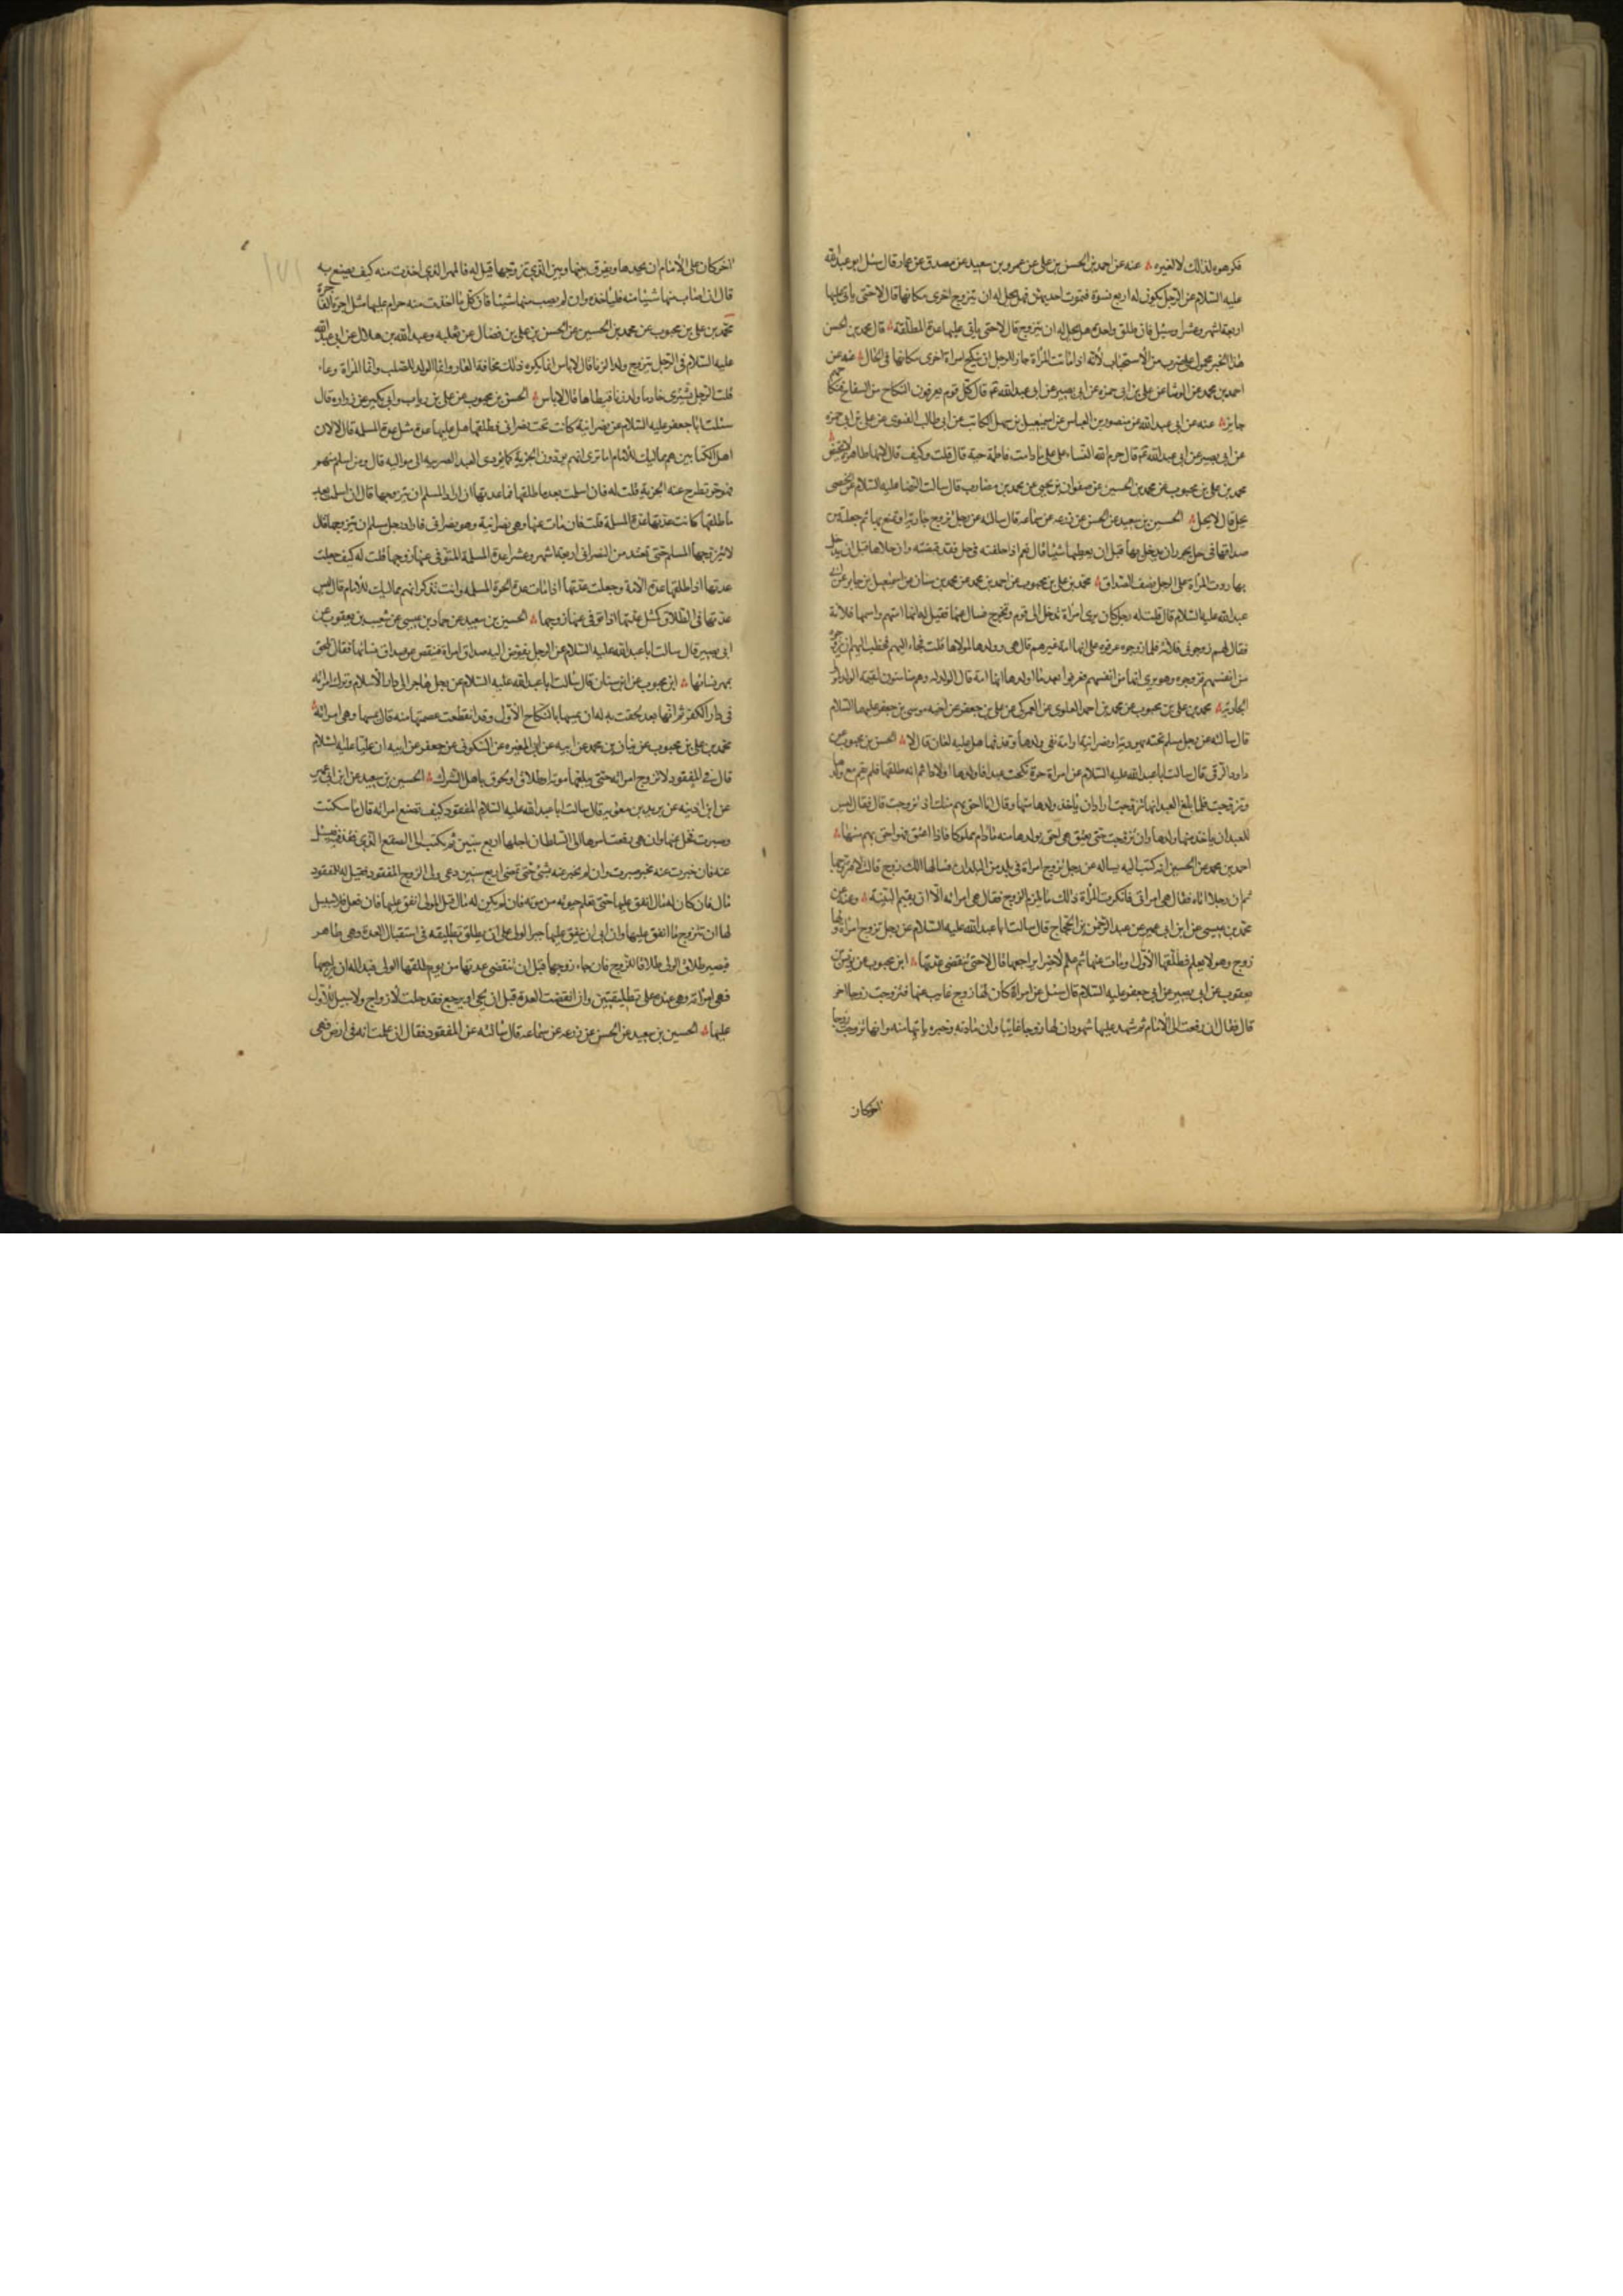 فكرهوه لذلك لا لغيره عنه عن احمد بن الحسن بن علي عن عمرو بن سعيد عن مصدق عن عمار قال سئل ابو عبد الله
عليه السلام عن الرجل يكون له اربع نسوة فتموت احديهن فهل يحل له ان يتزوج اخرى مكانها قال لا حتى يأتي عليها
اربعة اشهر وعشرا وسئل فان طلق واحدة هل يحل له ان يتزوج قال لا حتى يأتي عليها عدة المطلقة قال محمد بن الحسن
هذا الخبر محمول على ضرب من الاستحباب لأنه اذا ماتت المرأة جاز للرجل ان ينكح امرأة اخرى مكانها في الحال عنه عن
احمد بن محمد عن الوشا عن علي بن ابي حمزه عن ابي بصير عن ابي عبد الله ع قال كل قوم يعرفون النكاح من السفاح فنكاحهم
جايز عنه عن ابي عبد الله عن منصور بن العباس عن اسمعيل بن سهل الكاتب عن ابي طالب الغنوي عن علي بن ابي حمزه
عن ابي بصير عن ابي عبد الله ع قال حرم الله النساء على علي ما دامت فاطمة حية قال قلت وكيف قال لانها طاهر لا تحيض
محمد بن علي بن محبوب عن محمد بن الحسين عن صفوان بن يحيى عن محمد بن مضارب قال سالت الرضا عليه السلام عن الخصي
يحل قال لا يحل الحسين بن سعيد عن الحسن عن زرعه عن سماعه قال سالته عن رجل تزوج جارية او تمتع بها ثم جعلته من
صداقها في حل يجوز ان يدخل بها قبل ان يعطيها شيئا قال نعم اذا جعلته في حل فقد قبضته وان خلاها قبل ان يدخل
بها ردت المرأة على الرجل نصف الصداق محمد بن علي بن محبوب عن احمد بن محمد عن محمد بن سنان عن اسمعيل بن جابر عن ابي
عبد الله عليه السلام قال قلت له رجل كان يرى امرأة تدخل الى قوم وتخرج فسال عنها فقيل له انها امتهم واسمها فلانة
فقال لهم زوجوني فلانة فلما زوجوه عرفوه على انها امة غيرهم قال هي وولدها لمولاها قلت فجاء اليهم فخطب اليهم ان يزوجوه
من انفسهم فزوجوه وهو يرى انها من انفسهم فعرفوا بعد ما اولدها انها امة قال الولد له وهم ضامنون لقيمة الولد لمولى
الجارية محمد بن علي بن محبوب عن محمد بن احمد العلوي عن العمركي عن علي بن جعفر عن اخيه موسى بن جعفر عليهما السلام
قال سالته عن رجل مسلم تحته يهودية او نصرانية او امة نفى ولدها وقذفها هل عليه لعان قال لا الحسن بن محبوب عن
داود الرقي قال سالت ابا عبد الله عليه السلام عن امراة حرة نكحت عبدا فاولدها اولادا ثم انه طلقها فلم تقم مع ولدها
وتزوجت فلما بلغ العبد انها تزوجت اراد ان ياخذ ولده منها وقال انا احق بهم منك اذ تزوجت قال فقال ليس
للعبد ان ياخذ منها ولدها وان تزوجت حتى يعتق هي احق بولدها منه ما دام مملوكا فاذا اعتق فهو احق بهم منها
احمد بن محمد عن الحسين انه كتب اليه يساله عن رجل تزوج امراة في بلد من البلدان فسالها الك زوج قالت لا فتزوجها
ثم ان رجلا اتاه فقال هي امراتي فانكرت المرأة ذلك ما يلزم الزوج فقال هي امراته الا ان يقيم البينة وعنه عن
محمد بن عيسى عن ابن ابي عمير عن عبد الرحمن بن الحجاج قال سالت ابا عبد الله عليه السلام عن رجل تزوج امراة ولها
زوج وهو لا يعلم فطلقها الاول او مات عنها ثم علم الاخير ايراجعها قال لا حتى تنقضي عدتها ابن محبوب عن يونس بن
يعقوب عن ابي بصير عن ابي جعفر عليه السلام قال سئل عن امراة كان لها زوج غايب عنها فتزوجت زوجا اخر
قال فقال ان رفعت الى الامام ثم شهد عليها شهود ان لها زوجا غايبا وان مادته وخبره ياتيها منه وانها تزوجت زوجا
اخر كان
اخر كان على الامام ان يحدها ويفرق بينها وبين الذي تزوجها قيل له فالمهر الذي اخذت منه كيف يصنع به
قال ان اصاب منها شيئا منه فلياخذه وان لم يصب منها شيئا فان كل ما اخذت منه حرام عليها مثل اجرة الفاجرة
محمد بن علي بن محبوب عن محمد بن الحسين عن الحسن بن علي بن فضال عن ثعلبه وعبد الله بن هلال عن ابي عبد الله
عليه السلام في الرجل يتزوج ولد الزنا قال لا باس انما يكره ذلك مخافة العار وانما الولد للصلب وانما المرأة وعاء
قلت الرجل يشتري خادما ولد زنا فيطاها قال لا باس الحسن بن محبوب عن علي بن رياب وابي بكير عن زرارة قال
سئلت ابا جعفر عليه السلام عن نصرانية كانت تحت نصراني فطلقها هل عليها عدة مثل عدة المسلمه قال لا لان
اهل الكتابين هم مماليك للامام اما ترى انهم يؤدون الجزية كما يؤدي العبد الضريبه الى مواليه قال ومن اسلم منهم
فهو حر تطرح عنه الجزية قلت له فان اسلمت بعد ما طلقها فما عدتها ان اراد المسلم ان يتزوجها قال ان اسلمت بعد
ما طلقها كانت عدتها عدة المسلمة قلت فان مات عنها وهي نصرانية وهو نصراني فاراد رجل مسلم ان يتزوجها قال
لا يتزوجها المسلم حتى تعتد من النصراني اربعة اشهر وعشرا عدة المسلمة المتوفى عنها زوجها قلت له كيف جعلت
عدتها اذا طلقها عدة الامة وجعلت عدتها اذا مات عدة الحرة المسلمه وانت تذكر انهم مماليك للامام قال ليس
عدتها في الطلاق كمثل عدتها اذا توفي عنها زوجها الحسين بن سعيد عن حماد بن عيسى عن شعيب بن يعقوب عن
ابي بصير قال سالت ابا عبد الله عليه السلام عن الرجل يفوض اليه صداق امراة فنقص عن صداق نسائها فقال تلحق
بمهر نسائها ابن محبوب عن ابن سنان قال سالت ابا عبد الله عليه السلام عن رجل هاجر الى دار الاسلام وترك امراته
في دار الكفر ثم انها بعد لحقت به له ان يمسها بالنكاح الاول وقد انقطعت عصمتها منه قال يمسها وهي امراته
محمد بن علي بن محبوب عن بنان بن محمد عن ابيه عن ابن المغيره عن السكوني عن جعفر عن ابيه ان عليا عليه السلام
قال في المفقود لا تزوج امراته حتى يبلغها موته او طلاق او لحوق باهل الشرك الحسين بن سعيد عن ابن ابي عمير
عن ابن اذينه عن بريد بن معويه قال سالت ابا عبد الله عليه السلام المفقود كيف تصنع امراته قال ما سكتت
وصبرت يخل عنها وان هي رفعت امرها الى السلطان اجلها اربع سنين ثم يكتب الى الصقع الذي فقد فيه فيسئل
عنه فان خبرت عنه بخبر صبرت وان لم يخبر عنه بشئ حتى تمضي اربع سنين دعى ولي الزوج المفقود فقيل له للمفقود
مال فان كان له مال انفق عليها حتى تعلم حيوته من موته فان لم يكن له مال قيل للولي انفق عليها فان فعل فلا سبيل
لها ان تتزوج ما انفق عليها وان ابى ان ينفق عليها جبر الولي على ان يطلق تطليقه في استقبال العدة وهي طاهر
فيصير طلاق الولي طلاقا للزوج فان جاء زوجها قبل ان تنقضي عدتها من يوم طلقها الولي فبدا له ان يراجعها
فهي امراته وهي عنده على تطليقتين وان انقضت العدة قبل ان يجئ او يراجع فقد حلت للازواج ولا سبيل للاول
عليها الحسين بن سعيد عن الحسن عن زرعه عن سماعه قال سالته عن المفقود فقال ان علمت انه في ارض فهي